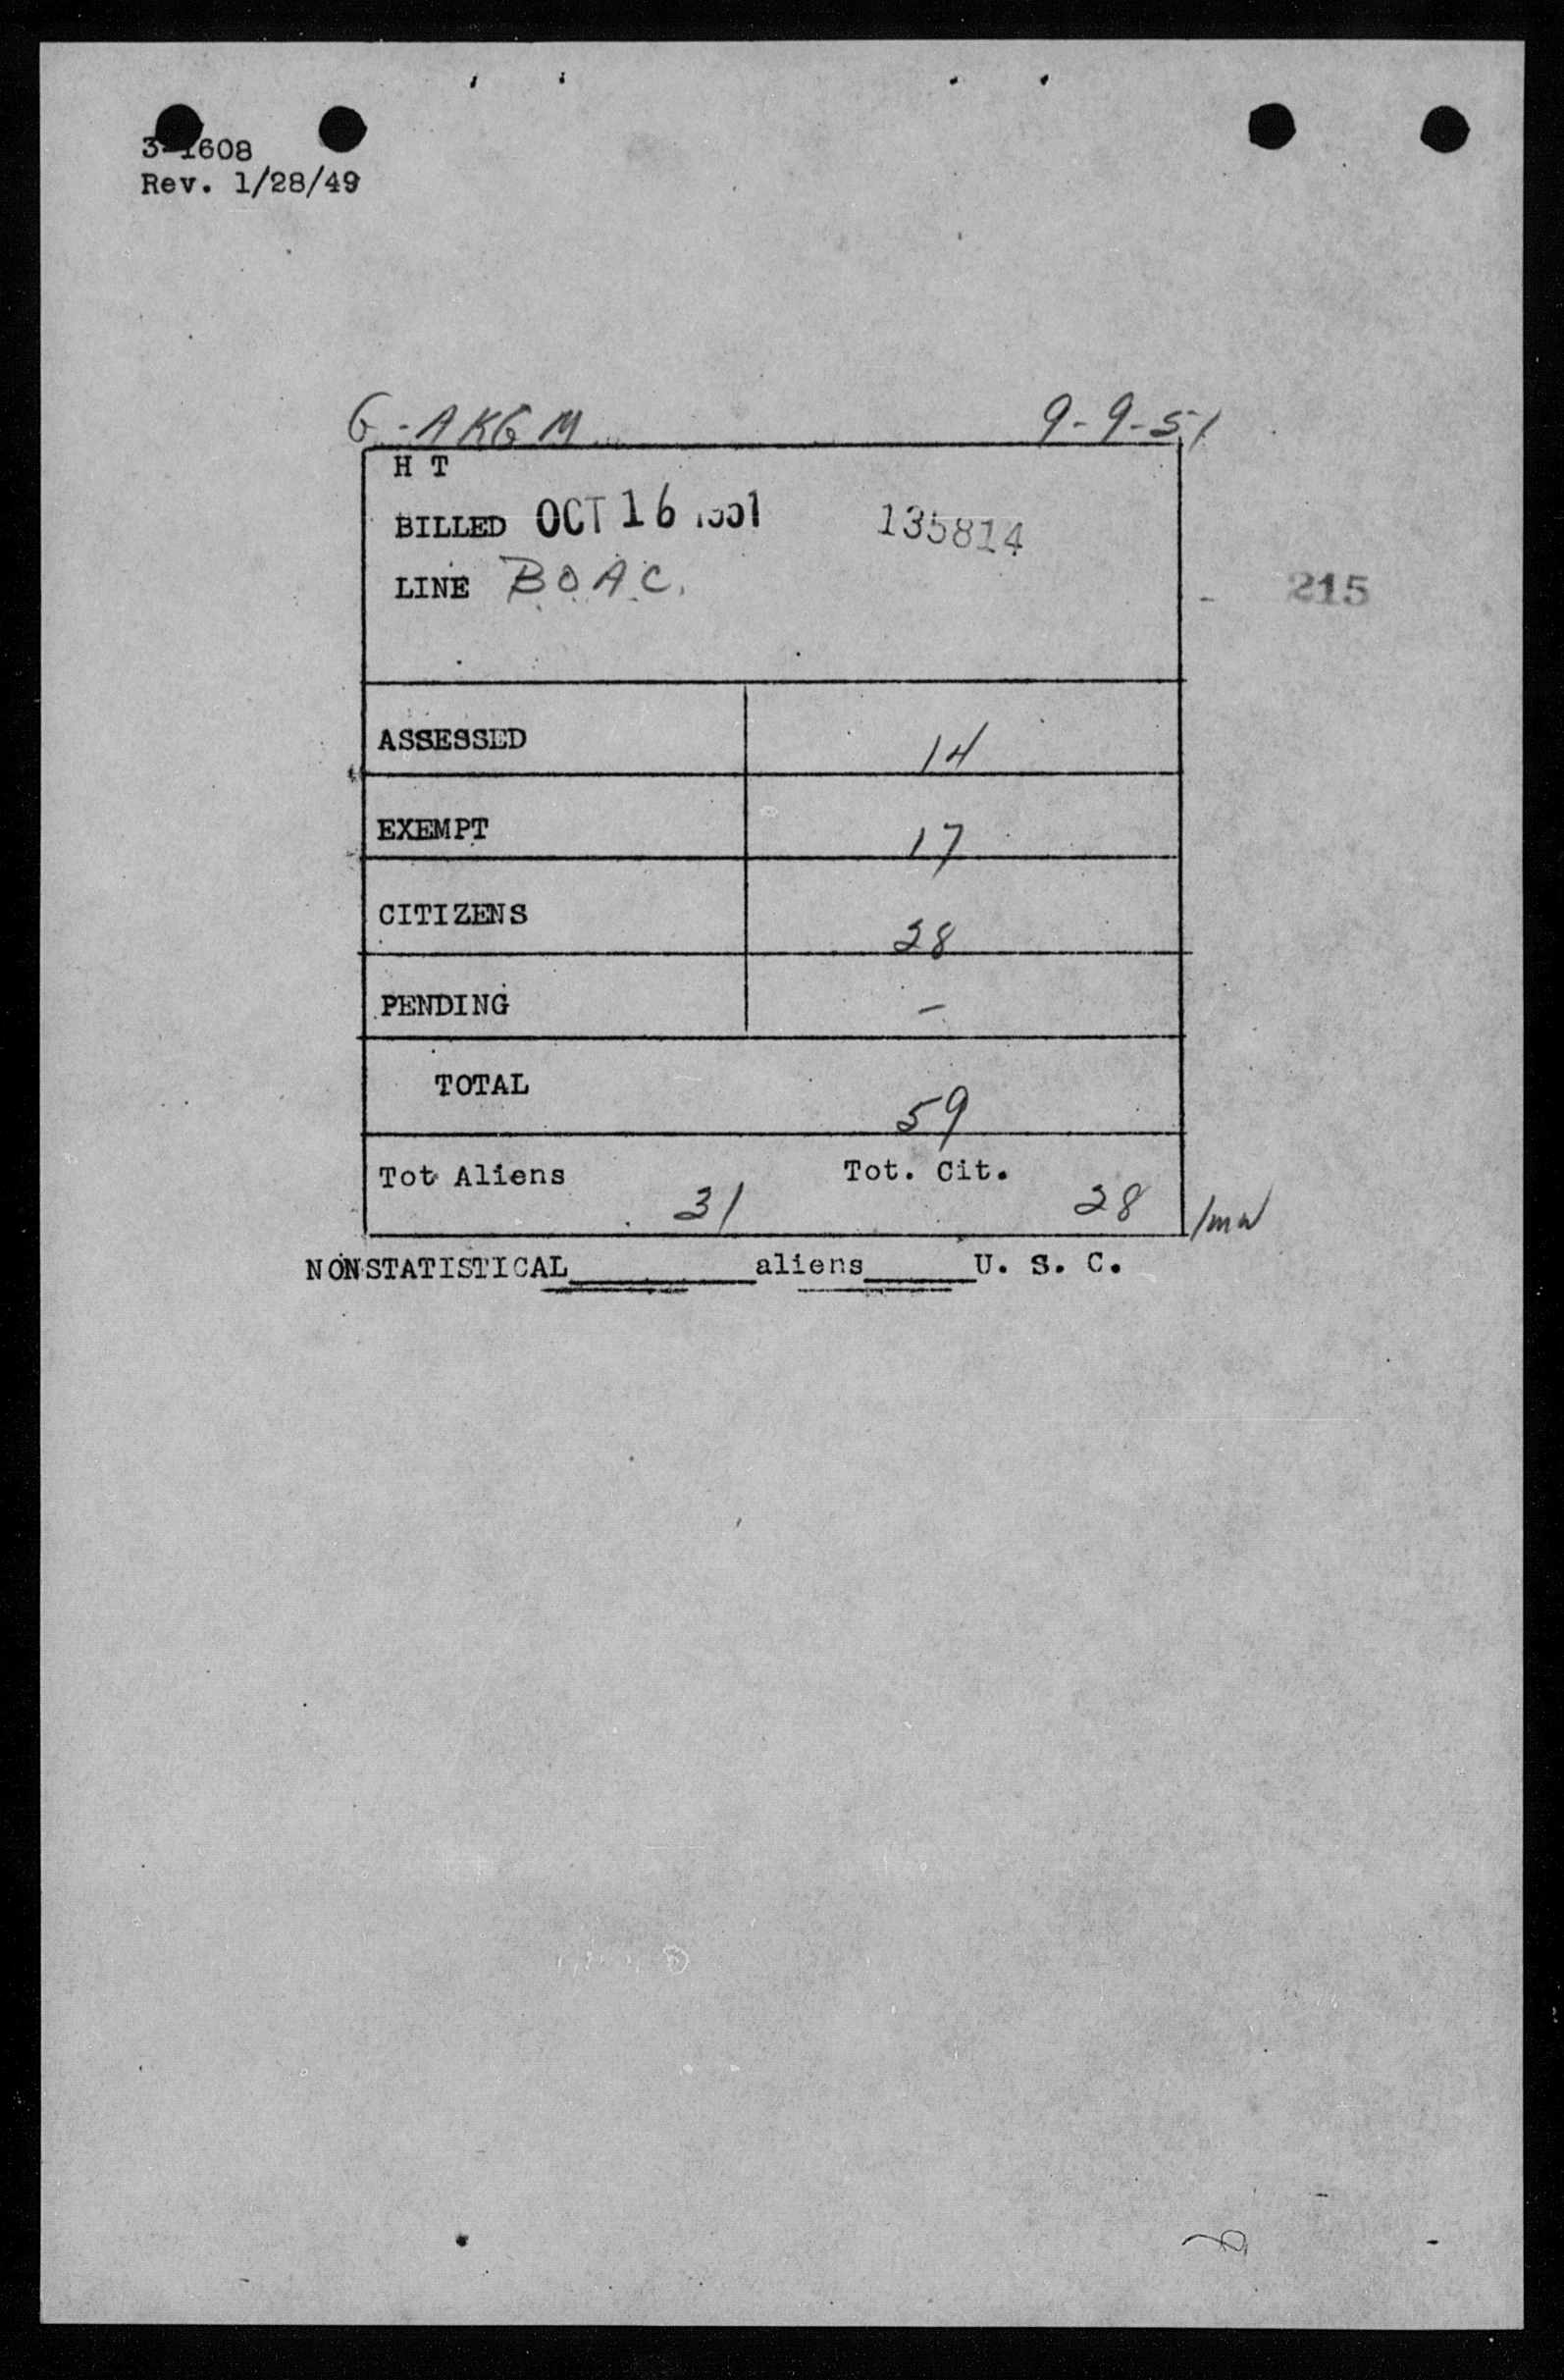 3-1608
Rev. 1/28/49
G-AKGM 9-9-51
H T
BILLED OCT 16 1951 135814
LINE B.O.A.C. 215
ASSESSED 14
EXEMPT 17
CITIZENS 28
PENDING -
TOTAL 59
Tot Aliens 31 Tot. Cit. 28 /mw
NONSTATISTICAL______aliens____U. S. C.